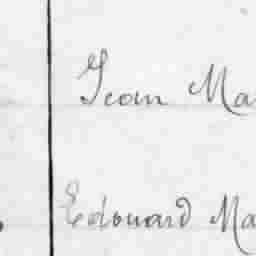 Jean Ma
Edouard Ma